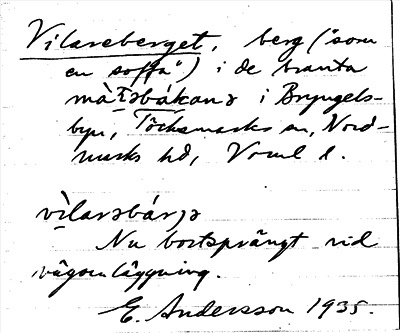 Vilareberget, berg ("som
en soffa") i de branta
må̀t̯əbákanə i Bryngels-
byn, Töcksmarks sn, Nord-
marks hd, Vrml l.
vìlarəbárjə
Nu bortsprängt vid
vägomläggning.
E. Andersson 1935.